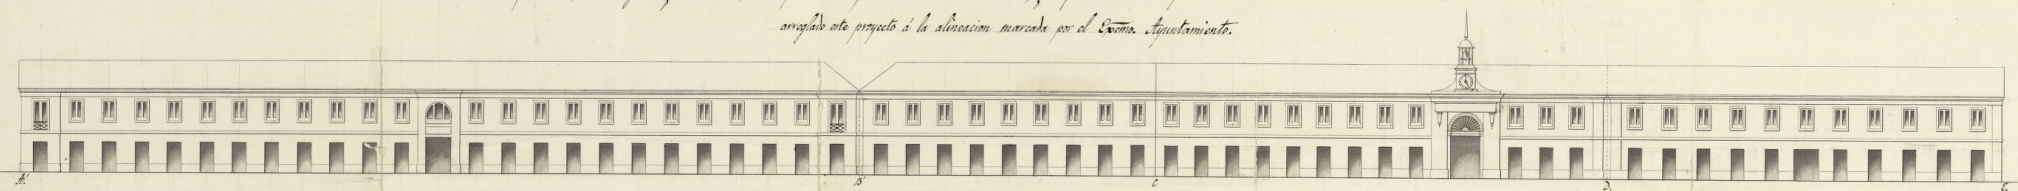 arreglado este proyecto á la alineacion marcada por el Excmo. Ayuntamiento.
A' B' C D. E.